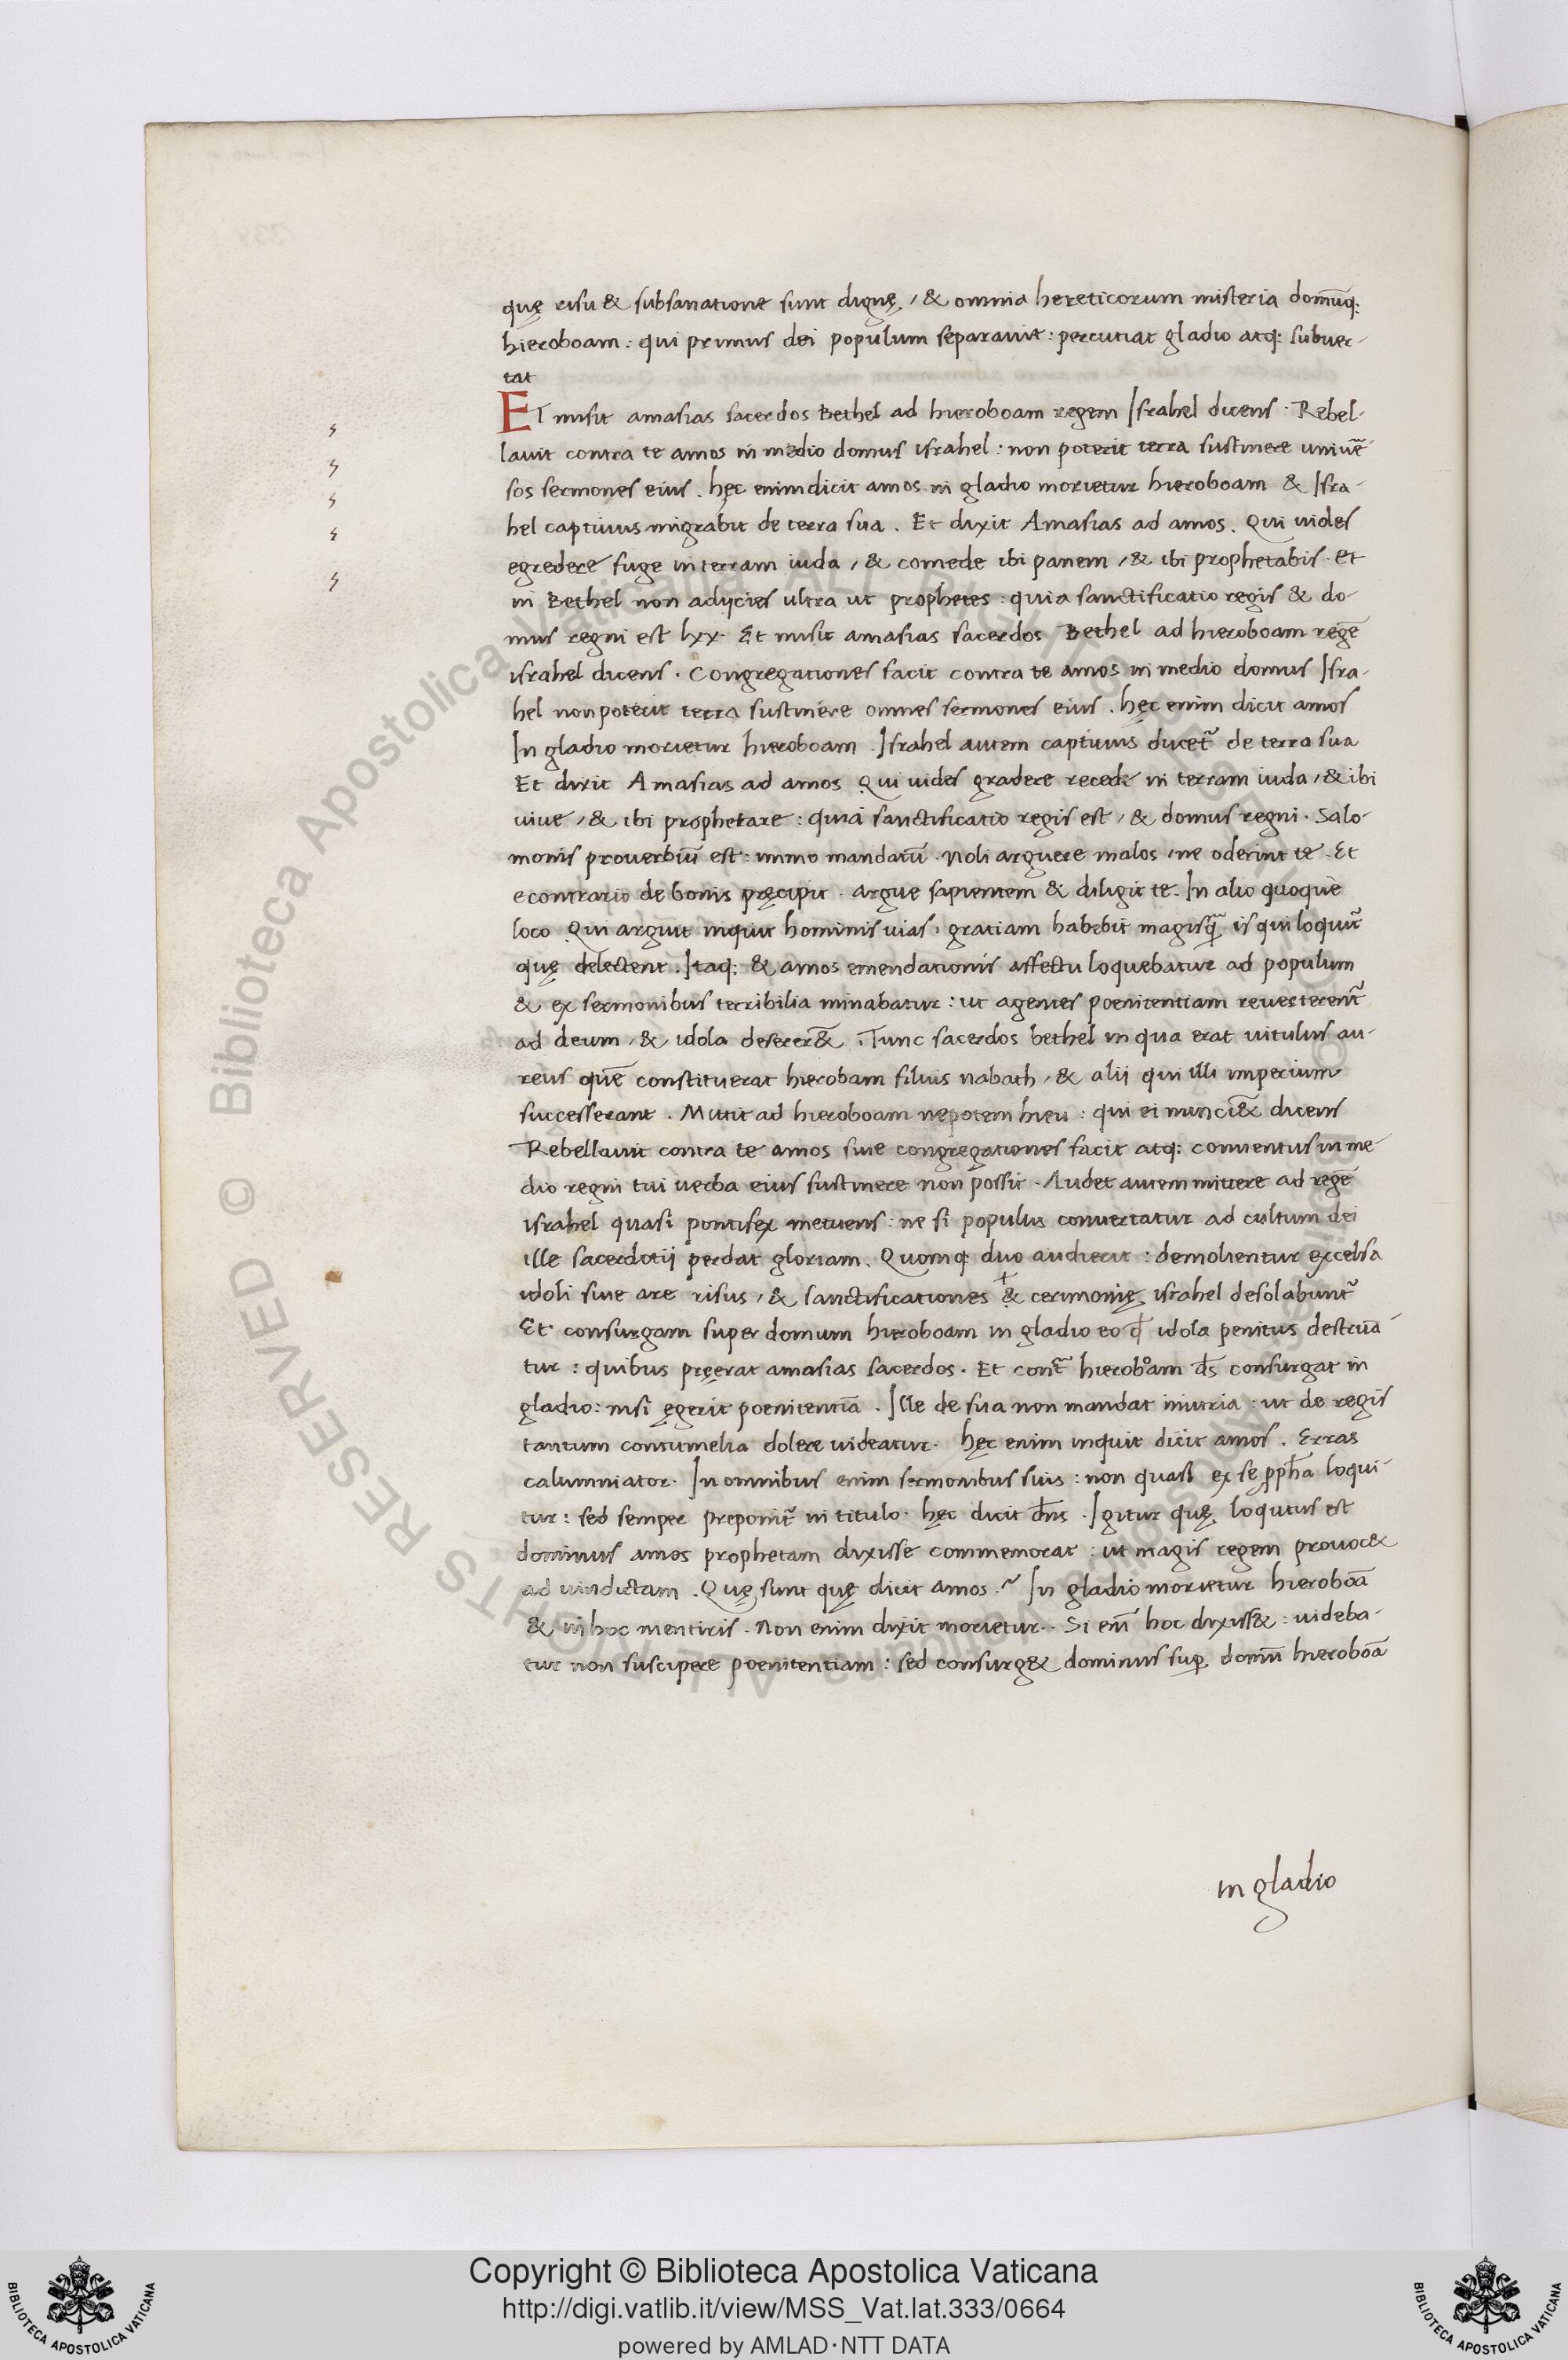 quę risu & subsanatione sunt dignę, & omnia hereticorum misteria domūq:
hieroboam: qui primus dei populum separauit: percutiat gladio atq: subuer-
tat
ET misit amasias sacerdos Bethel ad hieroboam regem Israhel dicens. Rebel-
lauit contra te amos in medio domus israhel: non poterit terra sustinere uniūe-
sos sermones eius. hęc enim dicit amos in gladio morietur hieroboam & Isra-
hel captiuus migrabit de terra sua. Et dixit Amasias ad amos. Qui uides
egredere fuge in terram iuda, & comede ibi panem, & ibi prophetabis. Et
in Bethel non adijcies ultra ut prophetes: quia sanctificatio regis & do-
mus regni est lxx. Et misit amasias sacerdos Bethel ad hieroboam regē
israhel dicens. Congregationes facit contra te amos in medio domus Isra-
hel non poterit terra sustinere omnes sermones eius. hęc enim dicit amos
In gladio morietur hieroboam. Israhel autem captiuus ducet̃ de terra sua
Et dixit Amasias ad amos Qui uides gradere recede in terram iuda, & ibi
uiue, & ibi prophetare: quia sanctificatio regis est, & domus regni. Salo-
monis prouerbiū est: immo mandatū. Noli arguere malos, ne oderint te. Et
econtrario de bonis pręcipit. argue sapientem & diligit te. In alio quoque
loco Qui arguit inquit hominis uias, gratiam habebit magisq̃ is qui loquit̃
quę delectent. Itaq: & amos emendationis affectu loquebatur ad populum
& ex sermonibus terribilia minabatur: ut agentes poenitentiam reuerterent̃
ad deum, & idola deserer&̃. Tunc sacerdos bethel in qua erat uitulus au-
reus quē constituerat hierobam filius nabath, & alij qui illi imperium
successerant. Mittit ad hieroboam nepotem hieu: qui ei nunci&̃ dicens
Rebellauit contra te amos siue congregationes facit atq: conuentus in me-
dio regni tui uerba eius sustinere non possit. Audet autem mittere ad regē
israhel quasi pontifex metuens: ne si populus conuertatur ad cultum dei
ille sacerdotij perdat gloriam. Quomq duo audierit: demolientur excelsa
idoli siue are risus, & sanctificationes & cerimonię israhel desolabunt̃
Et consurgam super domum hieroboam in gladio eo ꝙ idola penitus destrua-
tur: quibus pręerat amasias sacerdos. Et cont̃ hieroboam d̄s consurgat in
gladio: nisi ęgerit poenitentiā. Ille de sua non mandat iniuria: ut de regis
tantum contumelia dolere uideatur. hęc enim inquit dicit amos. Erras
calumniator. In omnibus enim sermonibus suis: non quasi ex se ꝓph̄a loqui-
tur: sed semper preponit̃ in titulo. hęc dicit dn̄s. Igitur quę loqutus est
dominus amos prophetam dixisse commemorat: ut magis regem prouoc&
ad uindictam. Quę sunt quę dicit amos.~ In gladio morietur hieroboā
& in hoc mentiris. Non enim dixit morietur.. Si em̄ hoc dixiss&: uideba-
tur non suscipere poenitentiam: sed consurg& dominus suꝑ domū hieroboā
in gladio
© Biblioteca Apostolica Vaticana ALL RIGHTS RESERVED
Copyright © Biblioteca Apostolica Vaticana
http://digi.vatlib.it/view/MSS_Vat.lat.333/0664
powered by AMLAD·NTT DATA
BIBLIOTECA APOSTOLICA VATICANA
BIBLIOTECA APOSTOLICA VATICANA